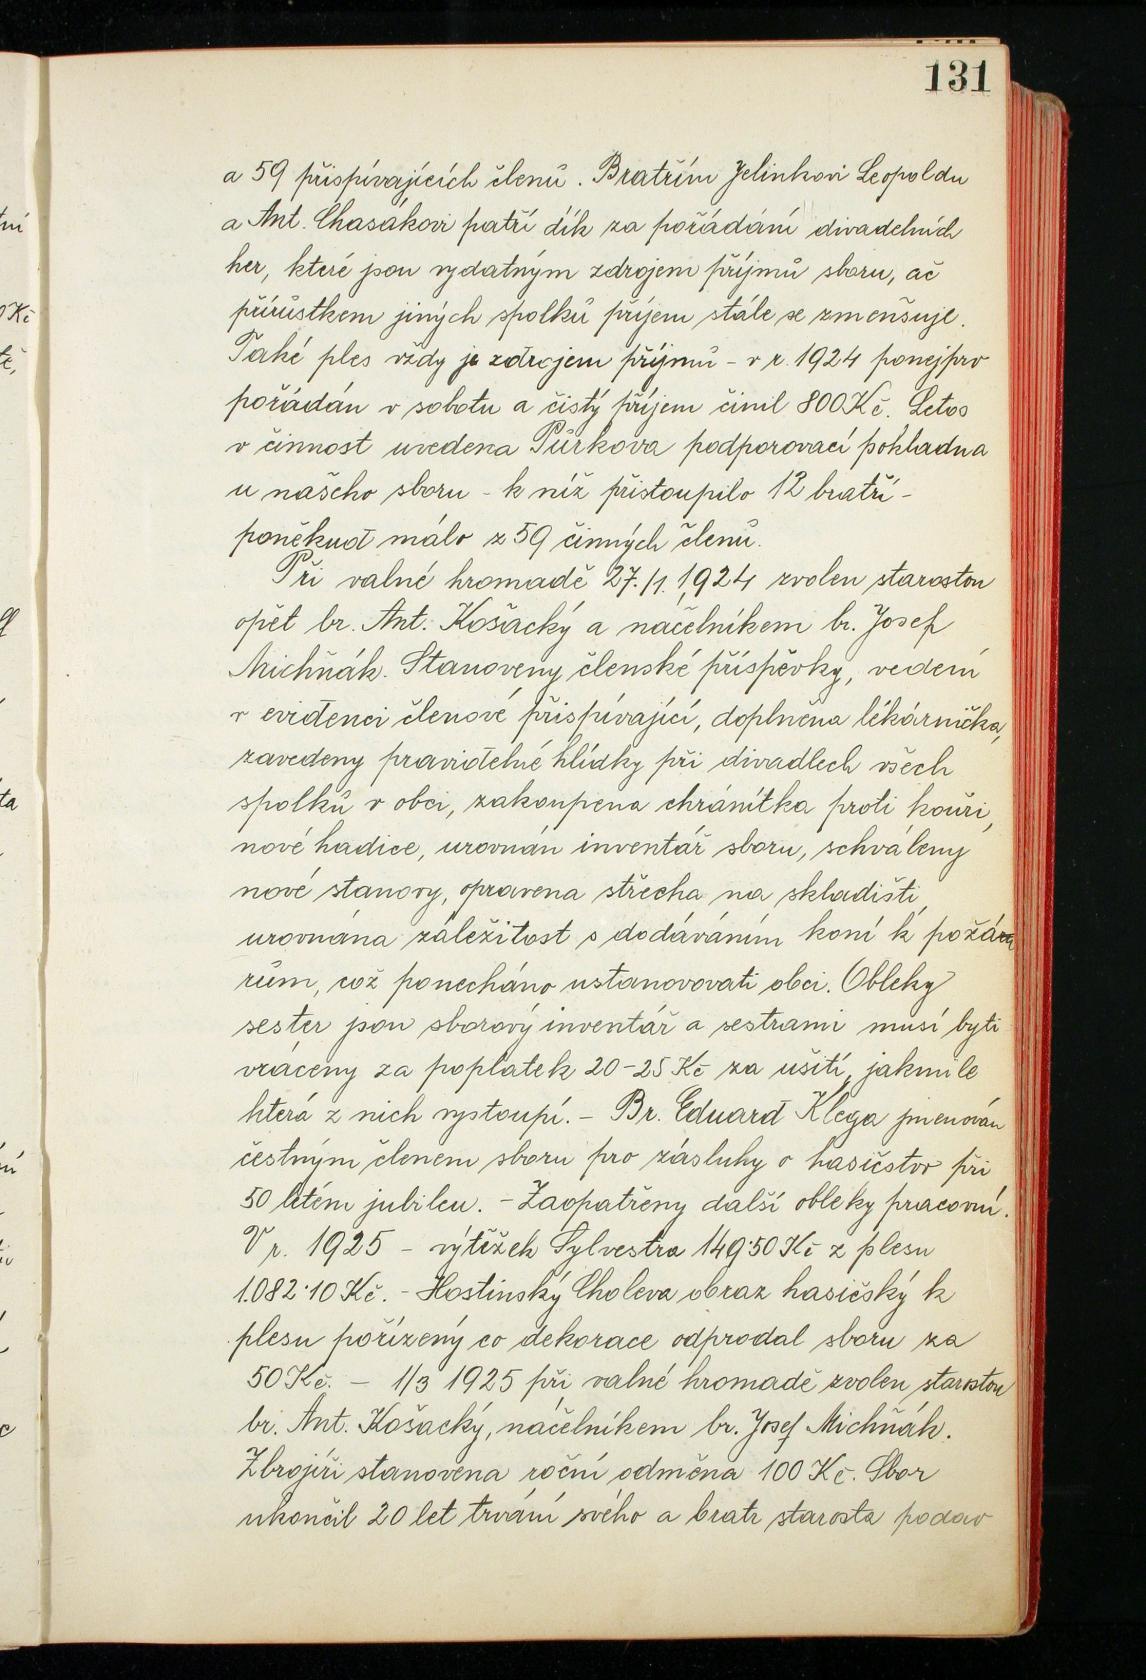 131
a 59 přispívajících členů. Bratřím Jelinkovi Leopoldu
a Ant. Chasákovi patří dík za pořádání divadelních
her, které jsou vydatným zdrojem příjmů sboru, ač
přírůstkem jiných spolků příjem stále se zmenšuje.
Také ples vždy je zdrojem příjmů - v r. 1924 ponejprv
pořádán v sobotu a čistý příjem činil 800 Kč. Letos
v činnost uvedena Půrkova podporovací pokladna
u našeho sboru - k níž přistoupilo 12 bratří -
poněkud málo z 59 činných členů.
Při valné hromadě 27./1. 1924 zvolen starostou
opět br. Ant. Košacký a náčelníkem br. Josef
Michňák. Stanoveny členské příspěvky, vedeni
v evidenci členové přispívající, doplněna lékárnička,
zavedeny pravidelné hlídky při divadlech všech
spolků v obci, zakoupena chránítka proti kouři,
nové hadice, urovnán inventář sboru, schváleny
nové stanovy, opravena střecha na skladišti,
urovnána záležitost s dodáváním koní k požá
rům, což ponecháno ustanovovati obci. Obleky
sester jsou sborový inventář a sestrami musí býti
vráceny za poplatek 20-25 Kč za ušití, jakmile
která z nich vystoupí. - Br. Eduard Klega jmenován
čestným členem sboru pro zásluhy o hasičstvo při
50 letém jubileu. - Zaopatřeny další obleky pracovní.
V r. 1925 - výtěžek Sylvestra 149·50 Kč z plesu
1.082·10 Kč. - Hostinský Choleva obraz hasičský k
plesu pořízený co dekorace odprodal sboru za
50 Kč. - 1/3 1925 při valné hromadě zvolen starostou
br. Ant. Košacký, náčelníkem br. Josef Michňák.
Zbrojíři stanovena roční odměna 100 Kč. Sbor
ukončil 20 let trvání svého a bratr starosta podav